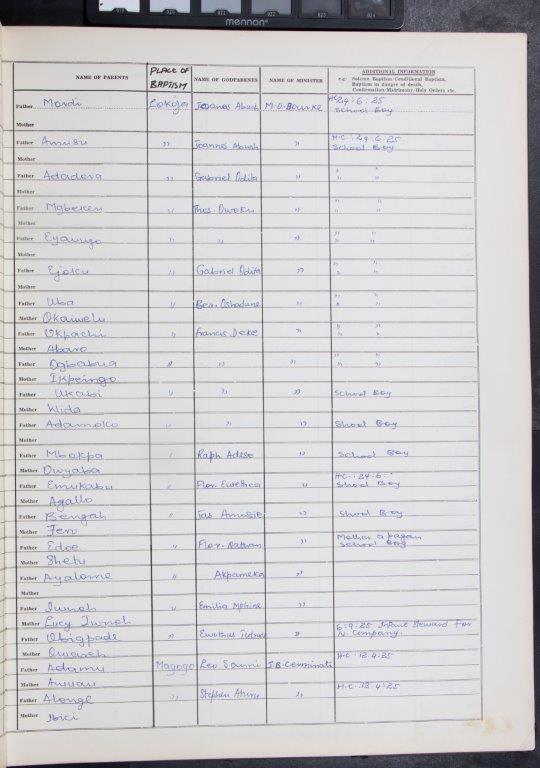 019 020 021 022 023 024
mennon
NAME OF PARENTS PLACE OF BAPTISM NAME OF GODPARENTS NAME OF MINISTER ADDITIONAL INFORMATION
e.g: Solemn Baptism/Conditional Baptism,
Baptism in danger of death,
Confirmation/Matrimony/Holy Orders etc.
Father Mordi Lokoja Joannes Abush M.O. Bourke H.C 24:6:25
School Boy
Mother
Father Amusu " Joannes Abush " H.C. 24:6:25
School Boy
Mother
Father Adadova " Gabriel Odita " " "
" "
Mother
Father Mgbeken " Thos. Dwoku " " "
" "
Mother
Father Eyanuyo " " " " "
" "
Mother
Father Ejoku " Gabriel Odita " " "
" "
Mother
Father Uba " Ben. Oshodune " " "
" "
Mother Okaiwelu
Father Okpachi " Francis Deke " " "
" "
Mother Abaro
Father Ogbabua " " " " "
" "
Mother Ikpeingo
Father Ukabi " " " School Boy
Mother Wida
Father Adamoko " " " Shool Boy
Mother
Father Mbakpa " Raph Adeso " School Boy
Mother Owyaba
Father Emukabu " Flor. Euethea " H.C. 24:6: "
School Boy
Mother Agallo
Father Bengah " Jas Amusie " Shool Boy
Mother Fero
Father Edoe " Flor. Nathan " Mother a pagan
School Boy
Mother Shetu
Father Ayalome " Akpameka "
Mother
Father Iwnoh " Emilia "
Mother Lucy Iwnoh
Father Obigpade " " 6:9:25 Infant Steward for
N. Company.
Mother
Father Adamu Magogo Leo Sanni J.B. Cerminati H.C. 12.4:25
Mother
Father Alonge " Stephen " H.C. 12.4:25
Mother Ibici